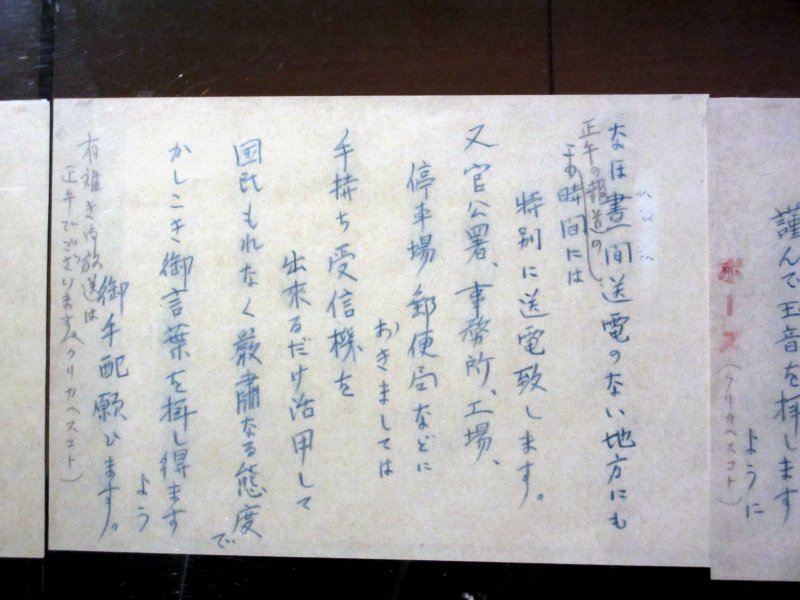 謹んで玉音を拝します
ように
ポーズ(クリカヘスコト)
なほ晝間送電のない地方にも
正午の報道の
この時間には
特別に送電致します。
又官公署、事務所、工場、
停車場 郵便局などに
おきましては
手持ち受信機を
出来るだけ活用して
国民もれなく厳粛なる態度で
かしこき御言葉を拝し得ます
よう
御手配願ひます。
有難き御放送は
正午でございます(クリカヘスコト)